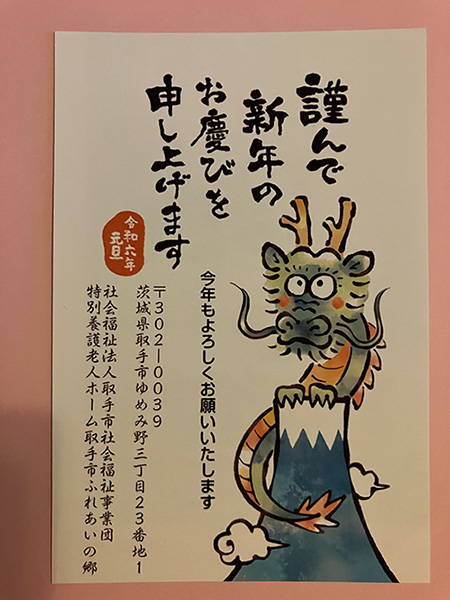 謹んで
新年の
お慶びを
申し上げます
令和六年
元旦
今年もよろしくお願いいたします
〒302-0039
茨城県取手市ゆめみ野三丁目23番地1
社会福祉法人取手市社会福祉事業団
特別養護老人ホーム取手市ふれあいの郷